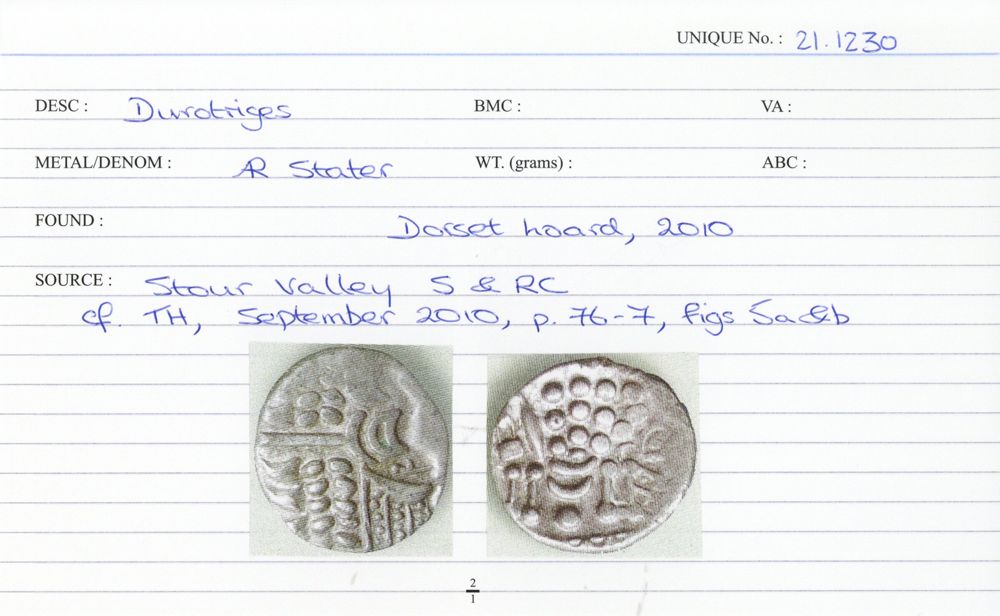 UNIQUE No. : 21.1230
DESC : Durotriges BMC : VA :
METAL/DENOM : AR Stater WT. (grams) : ABC :
FOUND : Dorset hoard, 2010
SOURCE : Stour Valley S & RC
cf. TH, September 2010, p. 76-7, figs 5a&b
2
1